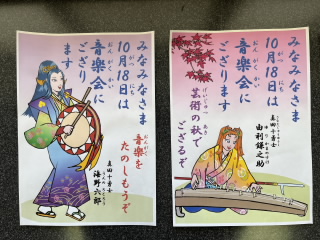 みなみなさま
10月18日は
音楽会に
ござります
音楽を
たのしもうぞ
真田十勇士
海野六郎
みなみなさま
10月18日は
音楽会に
ござります
芸術の秋で
ござるぞ
真田十勇士
由利鎌之助